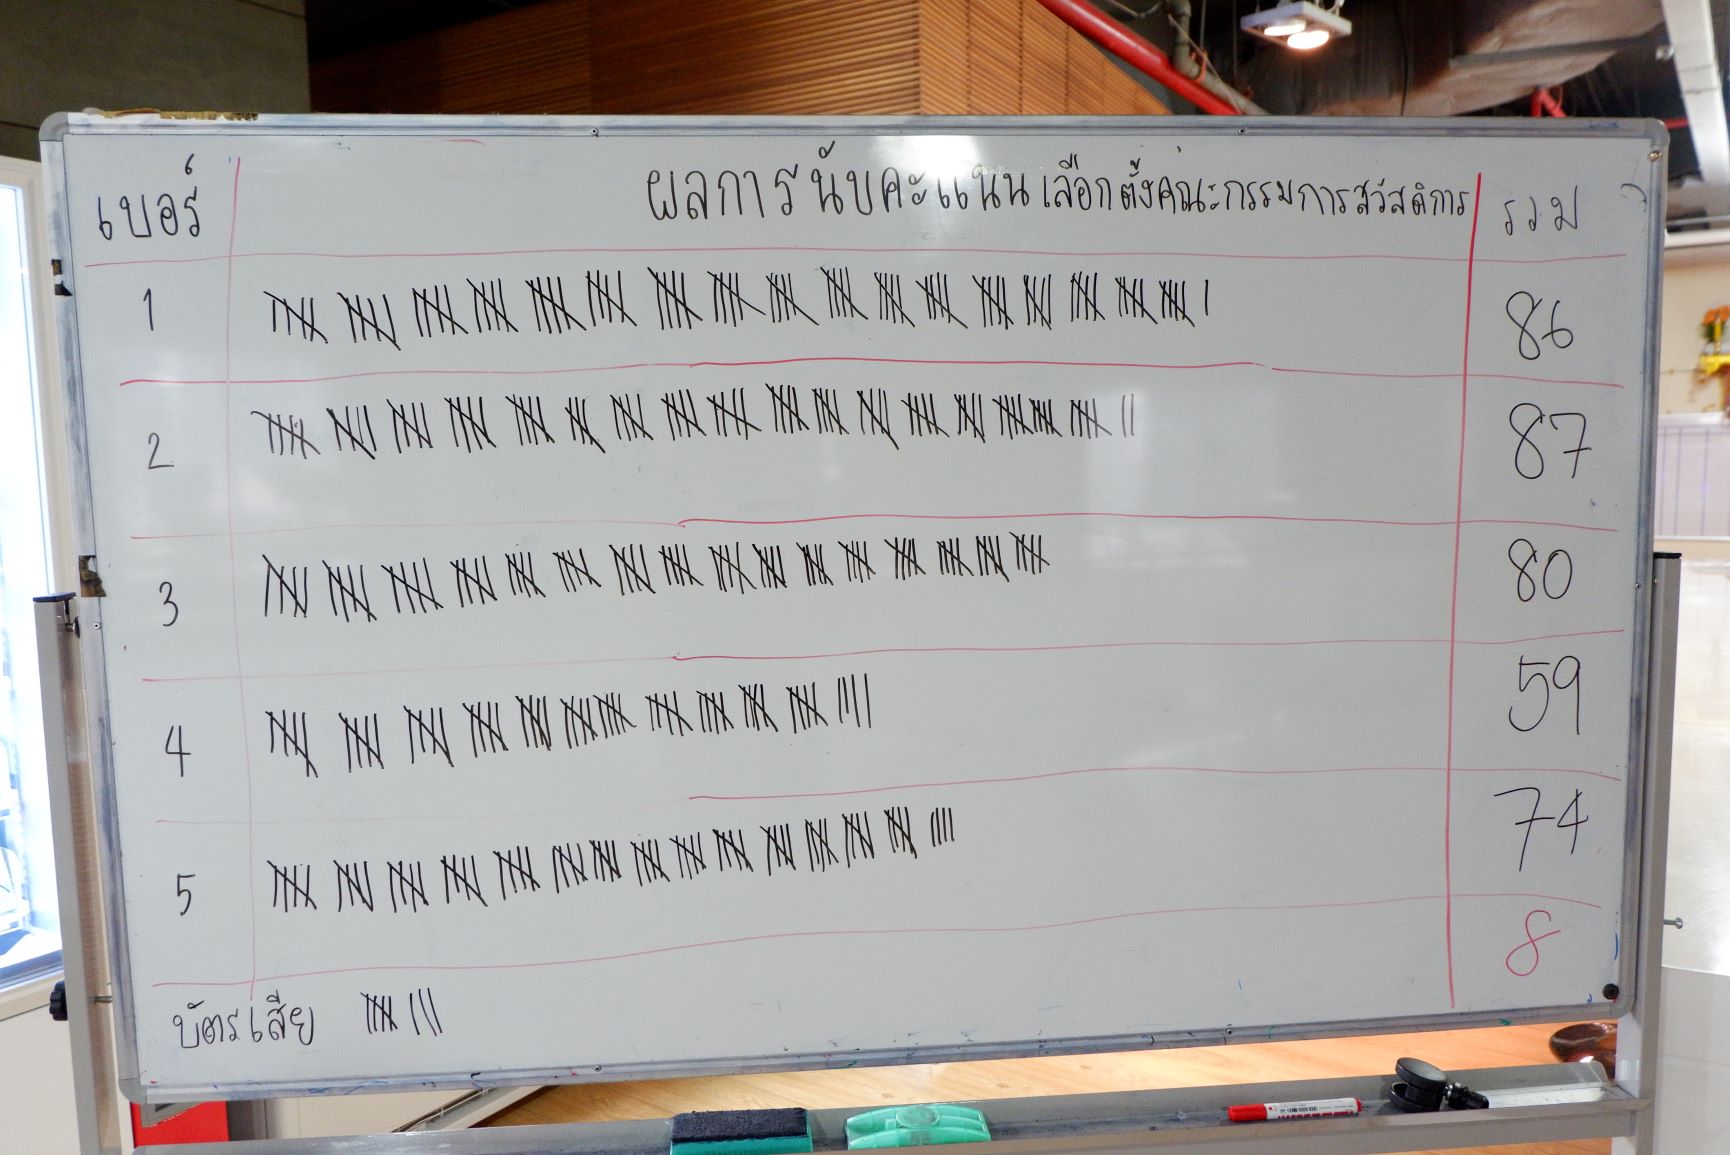 เบอร์ ผลการนับคะแนนเลือกตั้งคณะกรรมการสวัสดิการ รวม
1 86
2 87
3 80
4 59
5 74
8
บัตรเสีย